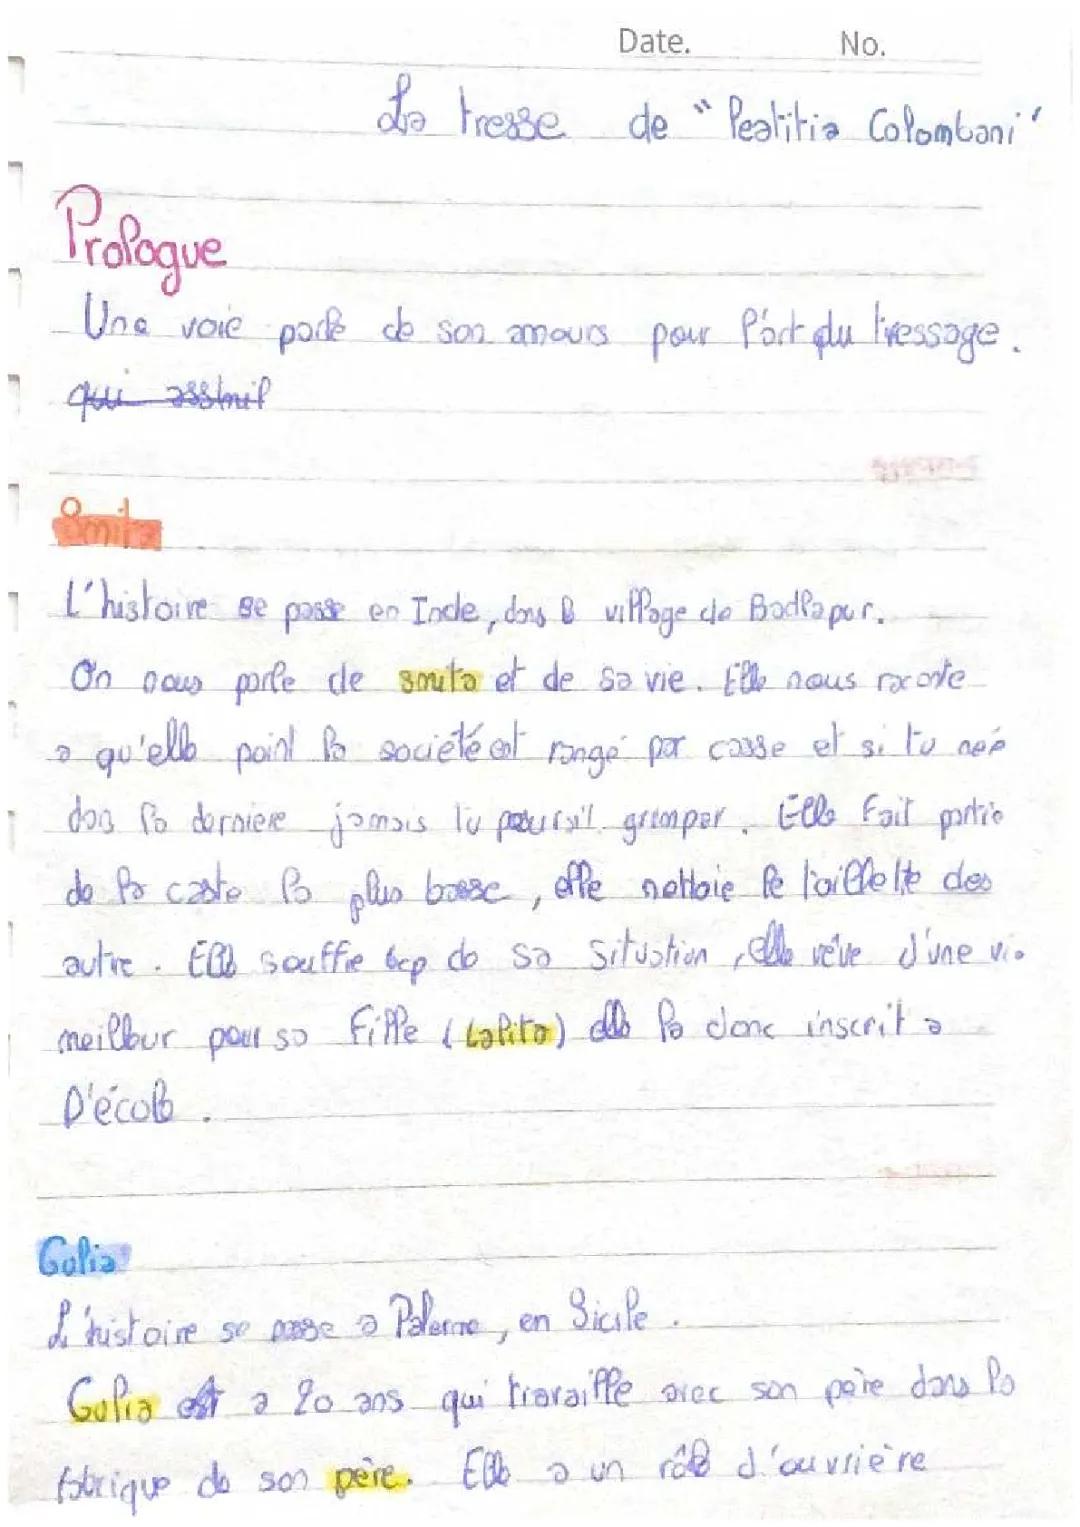 Date. No.
La tresse de "Leatitia Colombani"
Prologue
Une voie parle de son amours pour l'art du tressage.
qui assimil
Smita
L'histoire se passe en Inde, dans le village de Badlapur.
On nous parle de smita et de sa vie. Elle nous raconte
a qu'elle point la société est rangé par casse et si tu neé
dans la derniere jamais tu pourait grimper. Elle fait partie
de la caste la plus basse, elle nettoie le toillelte des
autre. Elle souffre bcp de sa situation, elle rêve d'une vie
meilleur pour sa fille (Lalita) elle la donc inscrit a
l'école.
Gulia
L'histoire se passe a Palerme, en Sicile.
Gulia est a 20 ans qui travaille avec son père dans la
fabrique de son père. Elle a un rôle d'ouvrière